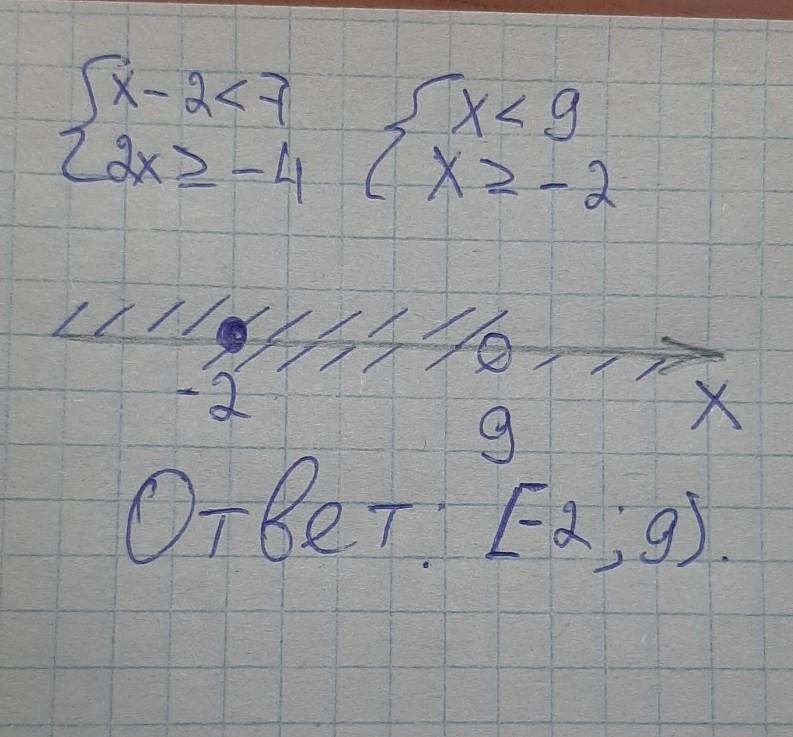 x - 2 < 7 x < 9
2x ≥ -4 x ≥ -2
-2 9 x
Ответ: [-2; 9).